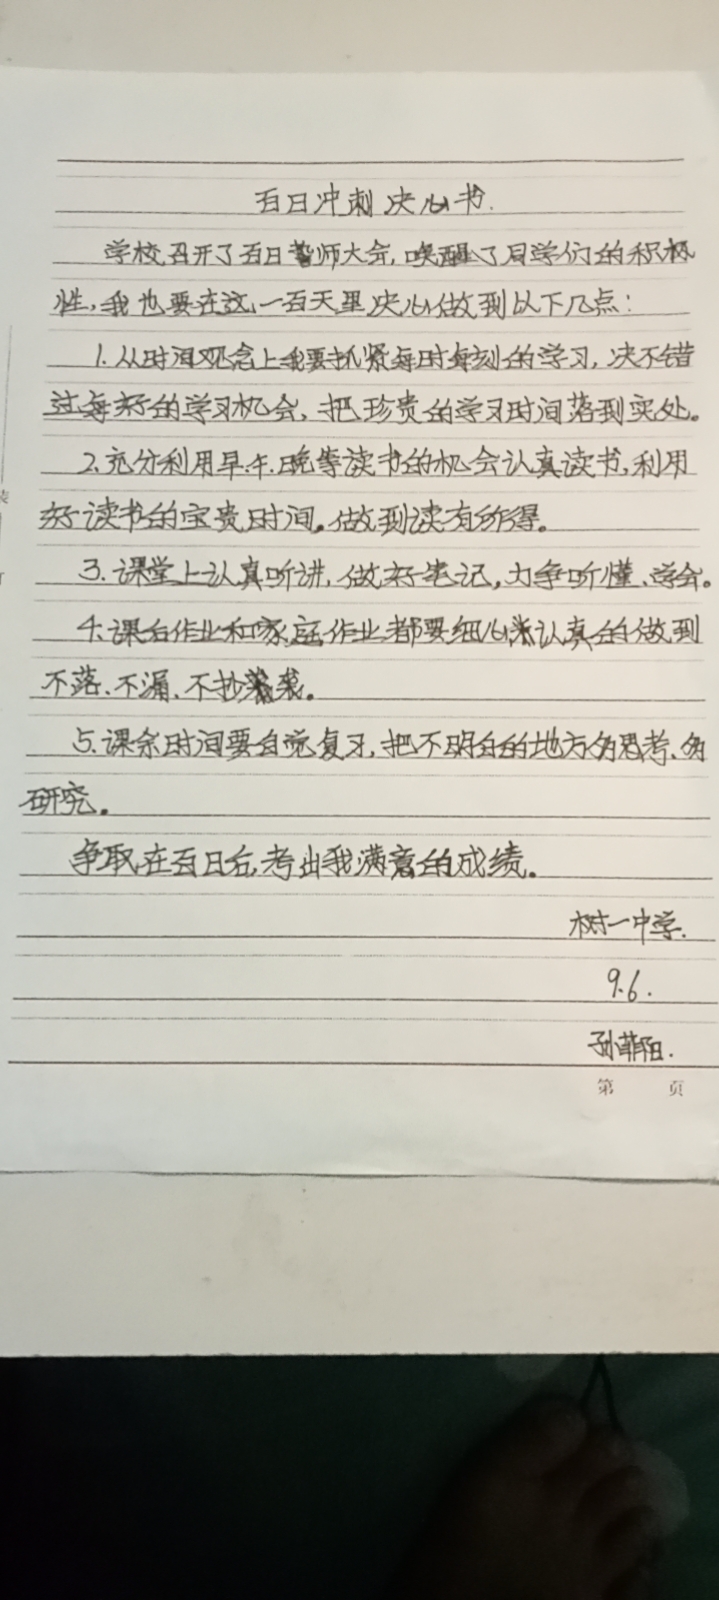 百日冲刺决心书.
学校召开了百日誓师大会,唤醒了同学们的积极
性,我也要在这一百天里决心做到以下几点:
1.从时间观念上我要抓紧每时每刻的学习,决不错
过每好的学习机会,把珍贵的学习时间落到实处。
2.充分利用早.午.晚等读书的机会认真读书,利用
好读书的宝贵时间。做到读有所得。
3.课堂上认真听讲,做好笔记,力争听懂、学会。
4.课后作业和家庭作业都要细心认真的做到
不落、不漏、不抄袭。
5.课余时间要自觉复习,把不明白的地方多思考、多
研究。
争取在百日后,考出我满意的成绩。
树一中学.
9.6.
孙菲阳.
第 页